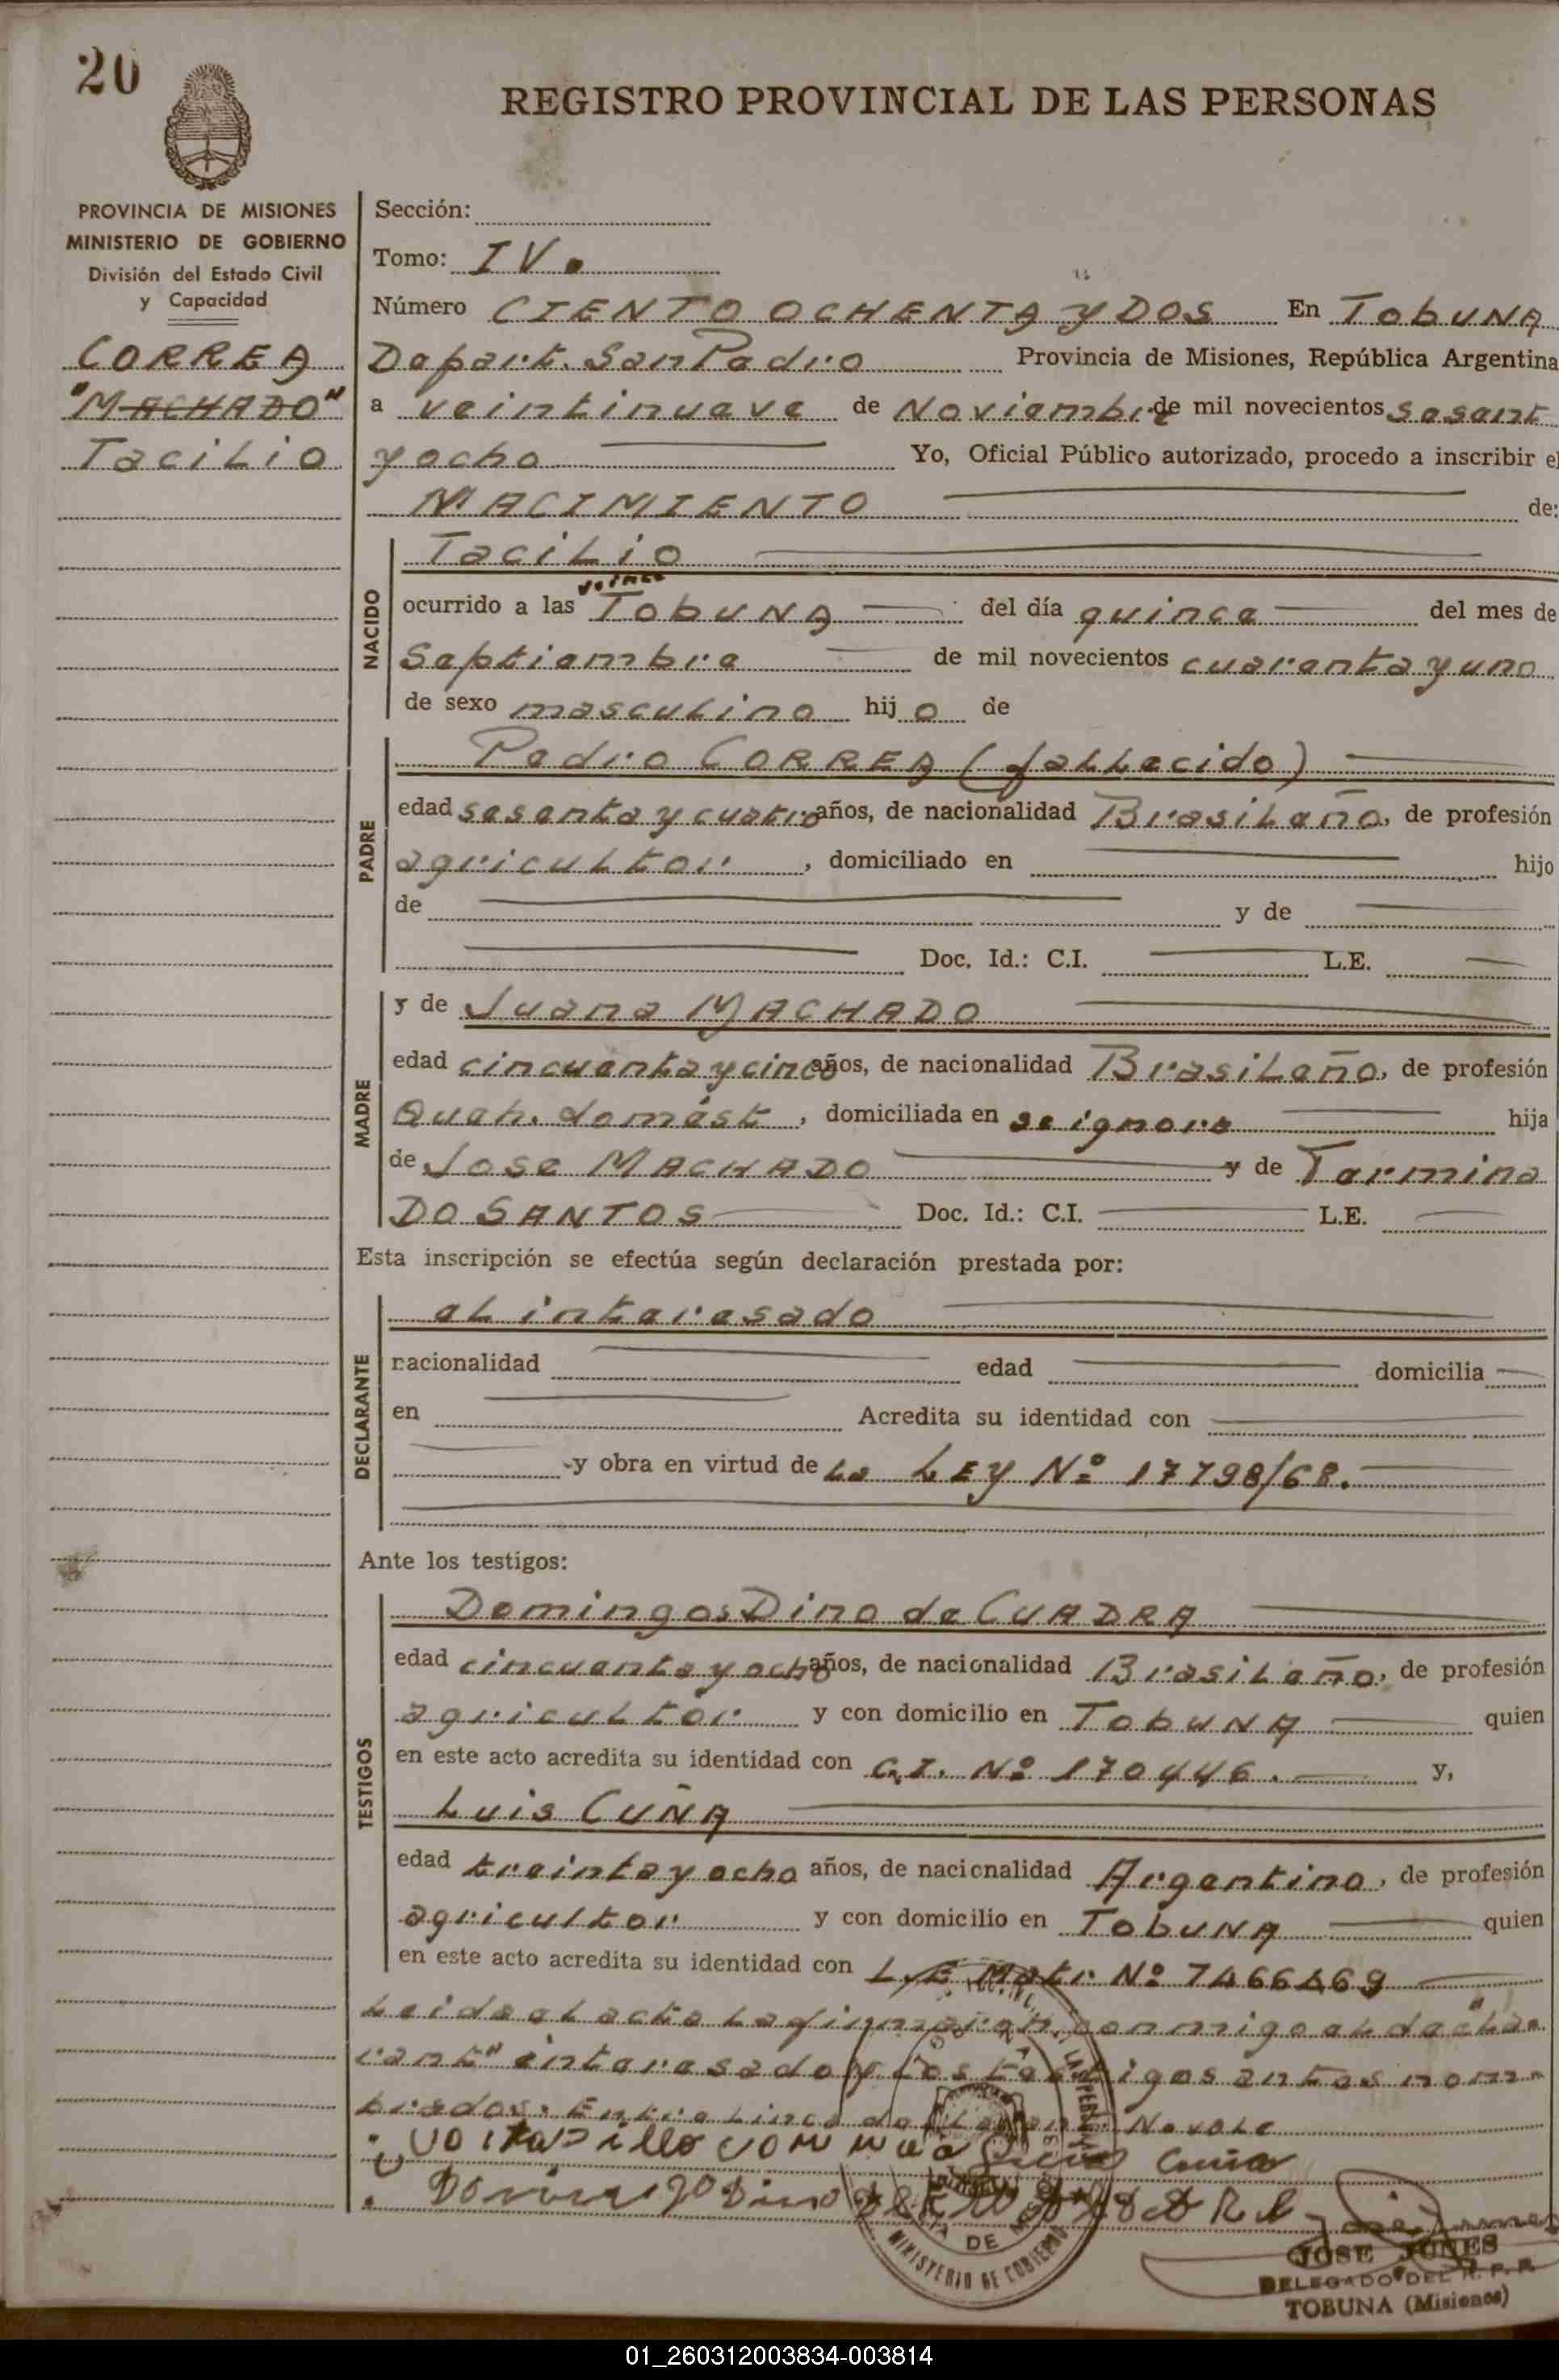 20
REGISTRO PROVINCIAL DE LAS PERSONAS
PROVINCIA DE MISIONES
MINISTERIO DE GOBIERNO
División del Estado Civil
y Capacidad
CORREA
"MACHADO"
Tacilio
Sección:
Tomo: IV.
Número CIENTO OCHENTA y DOS En TobUNA
Depart. San Pedro Provincia de Misiones, República Argentina
a veintinueve de Noviembre de mil novecientos sesent
y ocho Yo, Oficial Público autorizado, procedo a inscribir el
NACIMIENTO de:
NACIDO
Tacilio
ocurrido a las TobUNA del día quince del mes de
Septiembre de mil novecientos cuarenta y uno
de sexo masculino hijo de
PADRE
Pedro CORREA (fallecido)
edad sesenta y cuatro años, de nacionalidad Brasileño, de profesión
agricultor, domiciliado en hijo
de y de
Doc. Id.: C.I. L.E.
MADRE
y de Juana MACHADO
edad cincuenta y cinco años, de nacionalidad Brasileño, de profesión
Queh. domést, domiciliada en se ignora hija
de Jose MACHADO y de Termina
DO SANTOS Doc. Id.: C.I. L.E.
Esta inscripción se efectúa según declaración prestada por:
DECLARANTE
el interesado
nacionalidad edad domicilia
en Acredita su identidad con
y obra en virtud de la LEY Nº 17798/68.
Ante los testigos:
TESTIGOS
Domingos Dino de CUADRA
edad cincuenta y ocho años, de nacionalidad Brasileño, de profesión
agricultor y con domicilio en TobUNA quien
en este acto acredita su identidad con C.I. Nº 170446. y,
Luis CUÑA
edad treinta y ocho años, de nacionalidad Argentino, de profesión
agricultor y con domicilio en TobUNA quien
en este acto acredita su identidad con L.E Matr. Nº 7466469
Leida el acta la firmaron conmigo el "decla=
rant" interesado y los testigos antes nom=
brados. Entre linea Vale
Luis Cuña
JOSE JONES
DELEGADO DEL R. P. P.
TOBUNA (Misiones)
MINISTERIO DE GOBIERNO
01_260312003834-003814